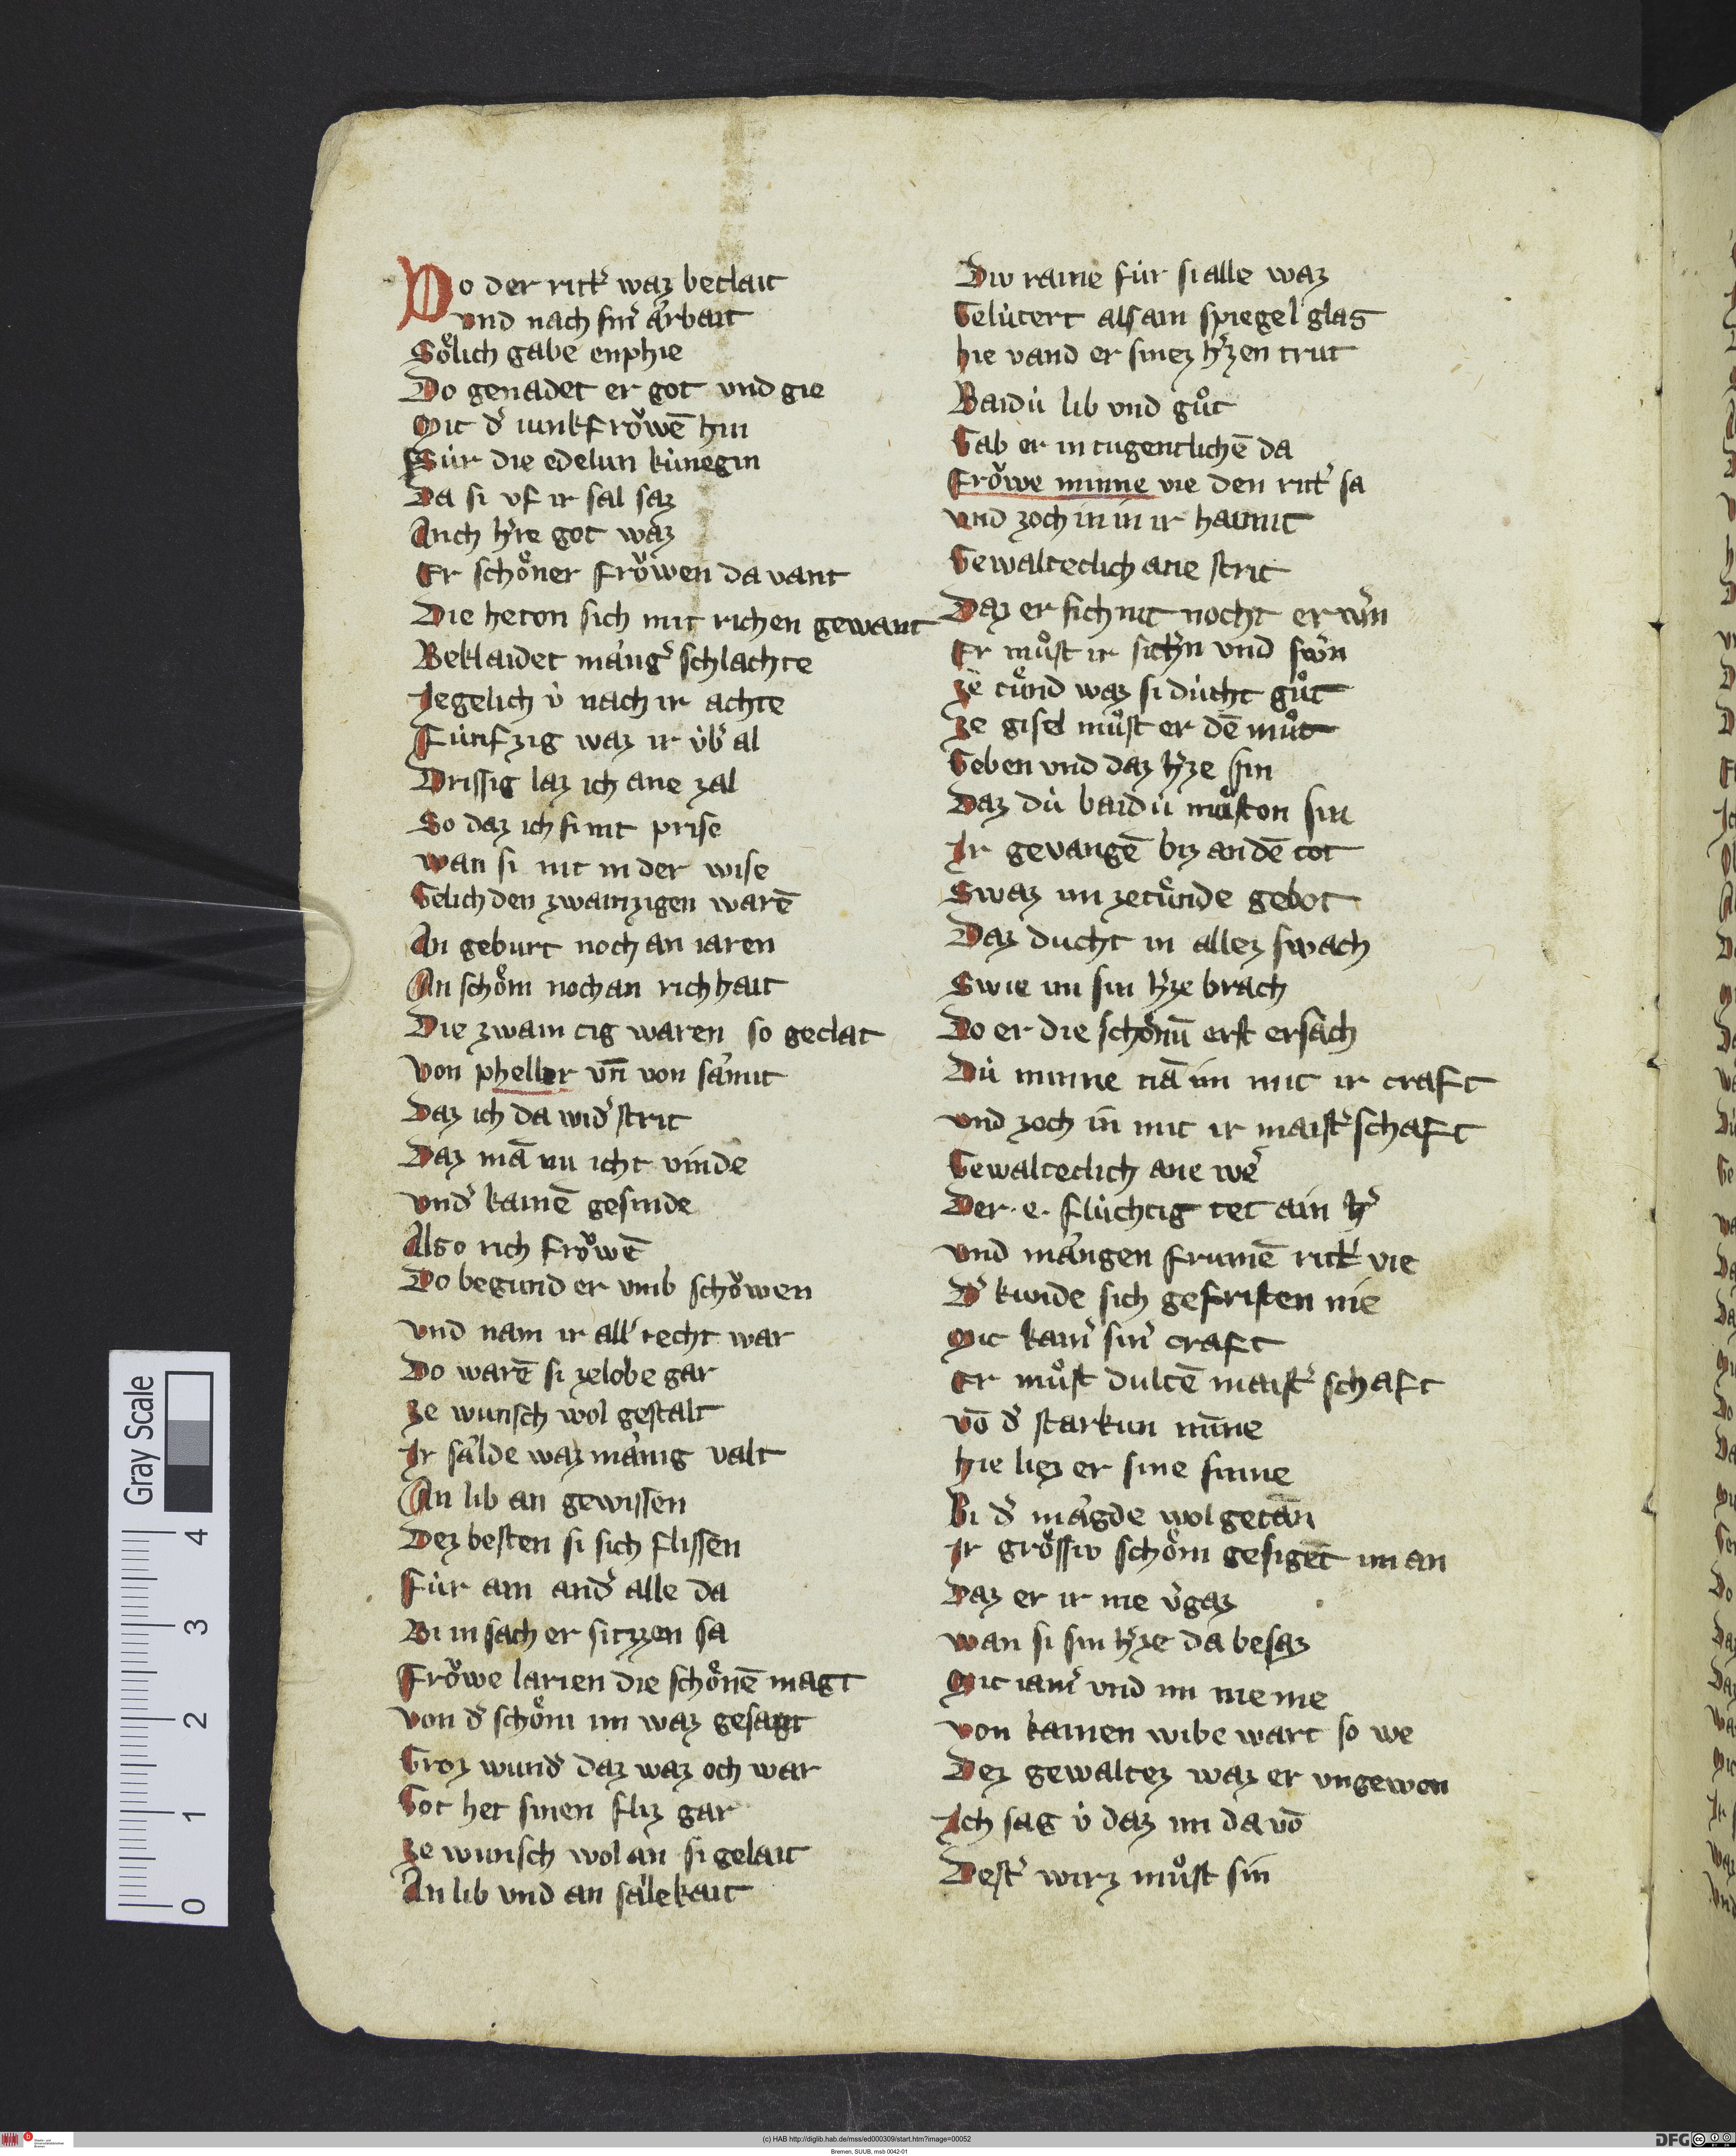 Do der ritt᾽ waz beclait
vnd nach sin᾽ aͤrbait
Soͤlich gabe enphie
Do genadet er got vnd gie
Mit d᾽ iunkfroͮwē hin
Fúr die edelun kúnegin
Da si vf ir sal saz
Auch h᾽re got waz
Er schoͤner froͮwen da vant
Die heton sich mit richen gewant
Beklaidet maͤng᾽ schlachte
Jegelich v̓ nach ir achte
Fúnfzig waz ir úb᾽ al
Drissig laz ich ane zal
So daz ich si nit prise
wan si nit in der wise
Gelich den zwainzigen warē
An geburt noch an iaren
An schoͤni noch an richhait
Die zwaincig waren so geclat
von pheller vn̄ von saͤmit
Daz ich da wid᾽ strit
Daz mā nu icht vinde
vnd᾽ kainē gesinde
Also rich froͮwē
Do begund er vmb schoͮwen
vnd nam ir all᾽ recht war
Do warē si zelobe gar
ze wunsch wol gestalt
Ir saͤlde waz maͤnig valt
An lib an gewissen
Dez besten si sich flissen
Fúr ain and᾽ alle da
Bi in sach er sitzzen sa
Froͮwe larien die schoͤnē magt
von d᾽ schoͤni im waz gesagt
Groz wund᾽ daz waz och war
Got het sinen fliz gar
ze wunsch wol an si gelait
An lib vnd an saͤlekait
Diw raine fúr si alle waz
Gelútert alsam spiegel glas
hie vand er sinez h᾽zen trut
Baidú lib vnd guͦt
Gab er in tugentlichē da
Froͮwe minne vie den ritt᾽ sa
vnd zoch in in ir hamit
Gewalteclich ane strit
Daz er sich nit mocht erw᾽n
Er muͦst ir sich᾽n vnd sw᾽n
ze tuͦnd waz si dúcht guͦt
ze gisel muͦst er dē muͦt
Geben vnd daz h᾽ze sin
Daz dú baidú muͦston sin
Ir gevangē biz an dē tot
Swaz im zetuͦnde gebot
Daz ducht in allez swach
Swie im sin h᾽ze brach
Do er die schoͤnū erst ersach
Dú minne nā im mit ir craft
vnd zoch in mit ir maist᾽schaft
Gewalteclich ane we᾽
Der .e. flúchtig tet ain h᾽
vnd maͤngen frumē ritt᾽ vie
D᾽ kunde sich gefristen nie
Mit kain᾽ sin᾽ craft
Er muͦst dultē maist᾽ schaft
vō d᾽ starkun mīne
hie liez er sine sinne
Bi d᾽ maͤgde wol getān
Ir groͤssiv schoͤni gesiget im an
Daz er ir nie v᾽gaz
wan si sin h᾽ze da besaz
Mit iam᾽ vnd im nie me
von kainen wibe wart so we
Dez gewaltez waz er vngewon
Ich sag v̓ daz im da vō
Dest᾽ wirz muͦst sin
Gray Scale
4
3
2
1
0
(c) HAB http://diglib.hab.de/mss/ed000309/start.htm?image=00052
Bremen, SUUB, msb 0042-01
DFG